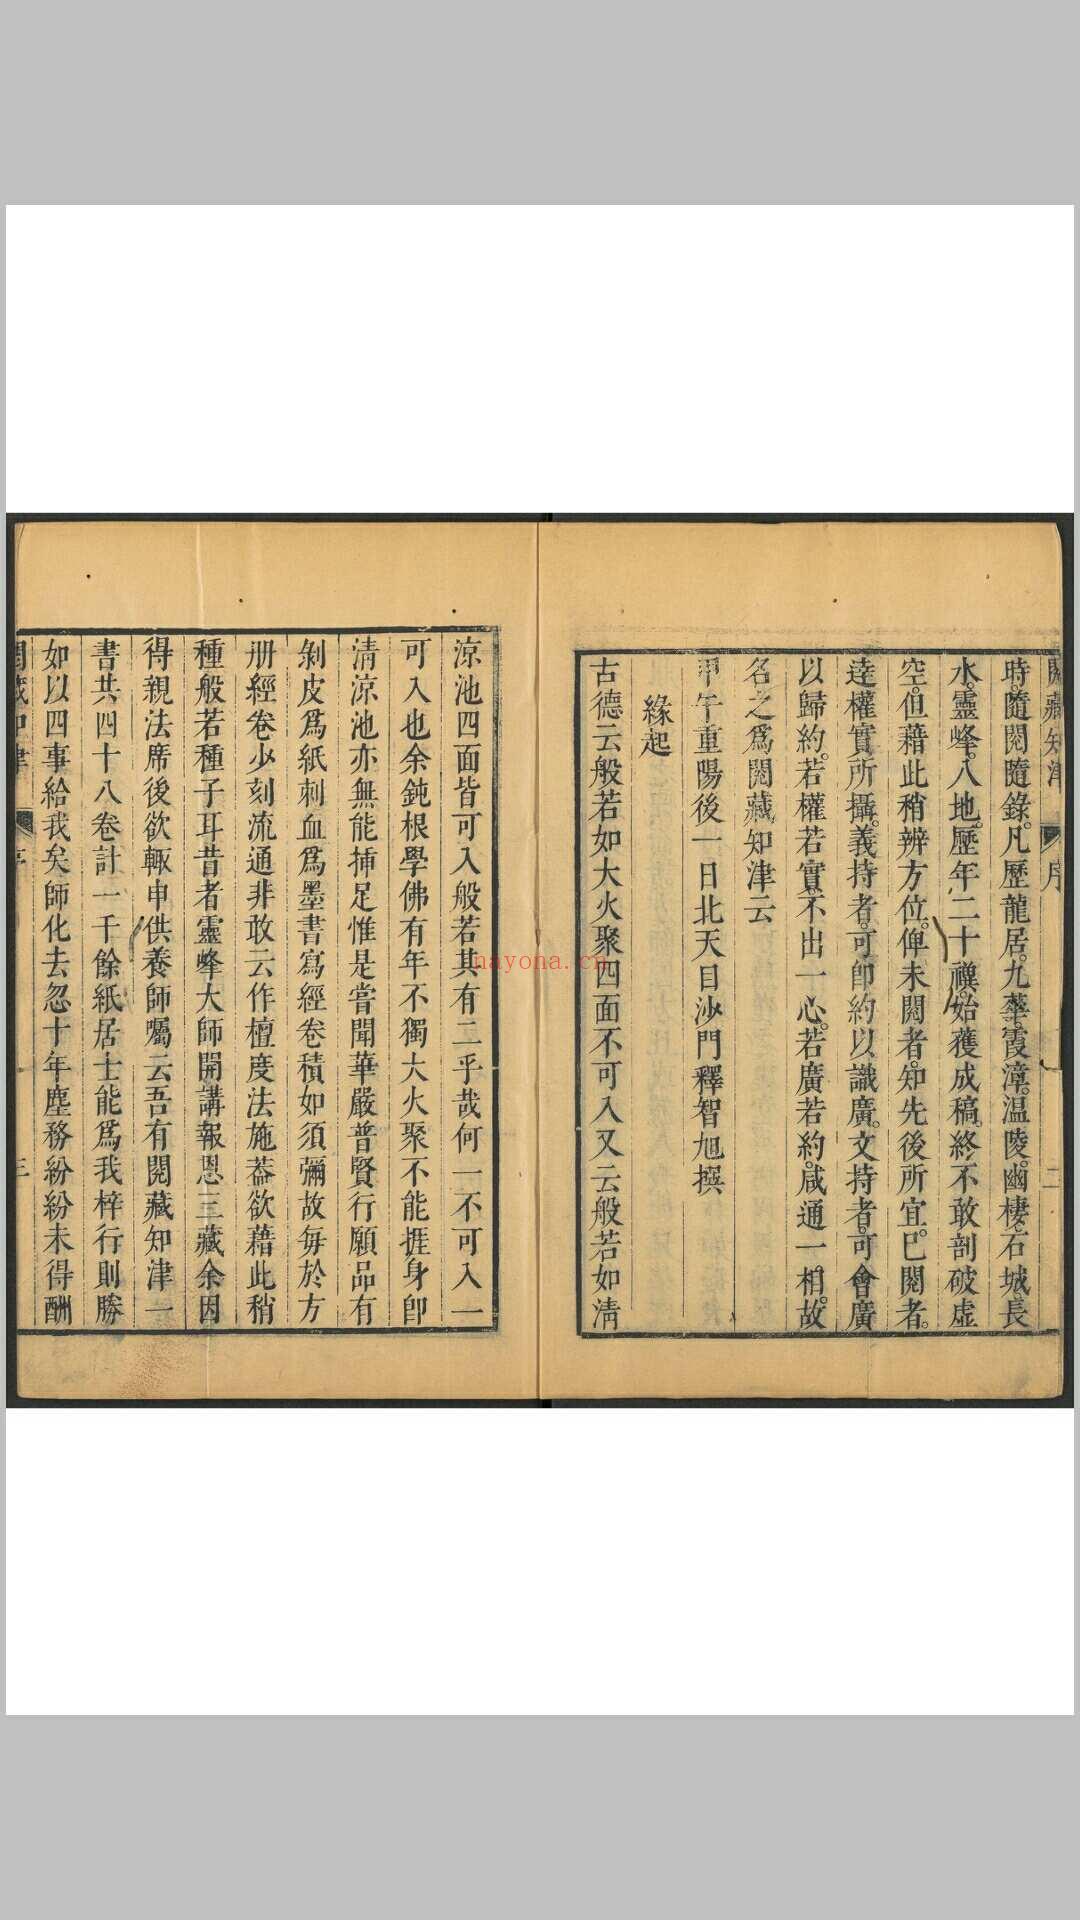 閱藏知津 序 二
時。隨閱隨錄。凡歷龍居。九華。霞漳。温陵。幽棲。石城。長
水。靈峰。八地。歷年二十禩。始獲成稿。終不敢剖破虛
空。但藉此稍辨方位。俾未閱者。知先後所宜。已閱者。
達權實所攝。義持者。可卽約以識廣。文持者。可會廣
以歸約。若權若實。不出一心。若廣若約。咸通一相。故
名之爲閱藏知津云
甲午重陽後一日北天目沙門釋智旭撰
緣起
古德云般若如大火聚四面不可入又云般若如淸
涼池四面皆可入般若其有二乎哉何一不可入一
可入也余鈍根學佛有年不獨大火聚不能捱身卽
淸涼池亦無能揷足惟是嘗聞華嚴普賢行願品有
剝皮爲紙刺血爲墨書寫經卷積如須彌故每於方
册經卷少刻流通非敢云作檀度法施葢欲藉此稍
種般若種子耳昔者靈峰大師開講報恩三藏余因
得親法席後欲輙申供養師囑云吾有閱藏知津一
書共四十八卷計一千餘紙居士能爲我梓行則勝
如以四事給我矣師化去忽十年塵務紛紛未得酬
閱藏知津 序 三
nayona.cn